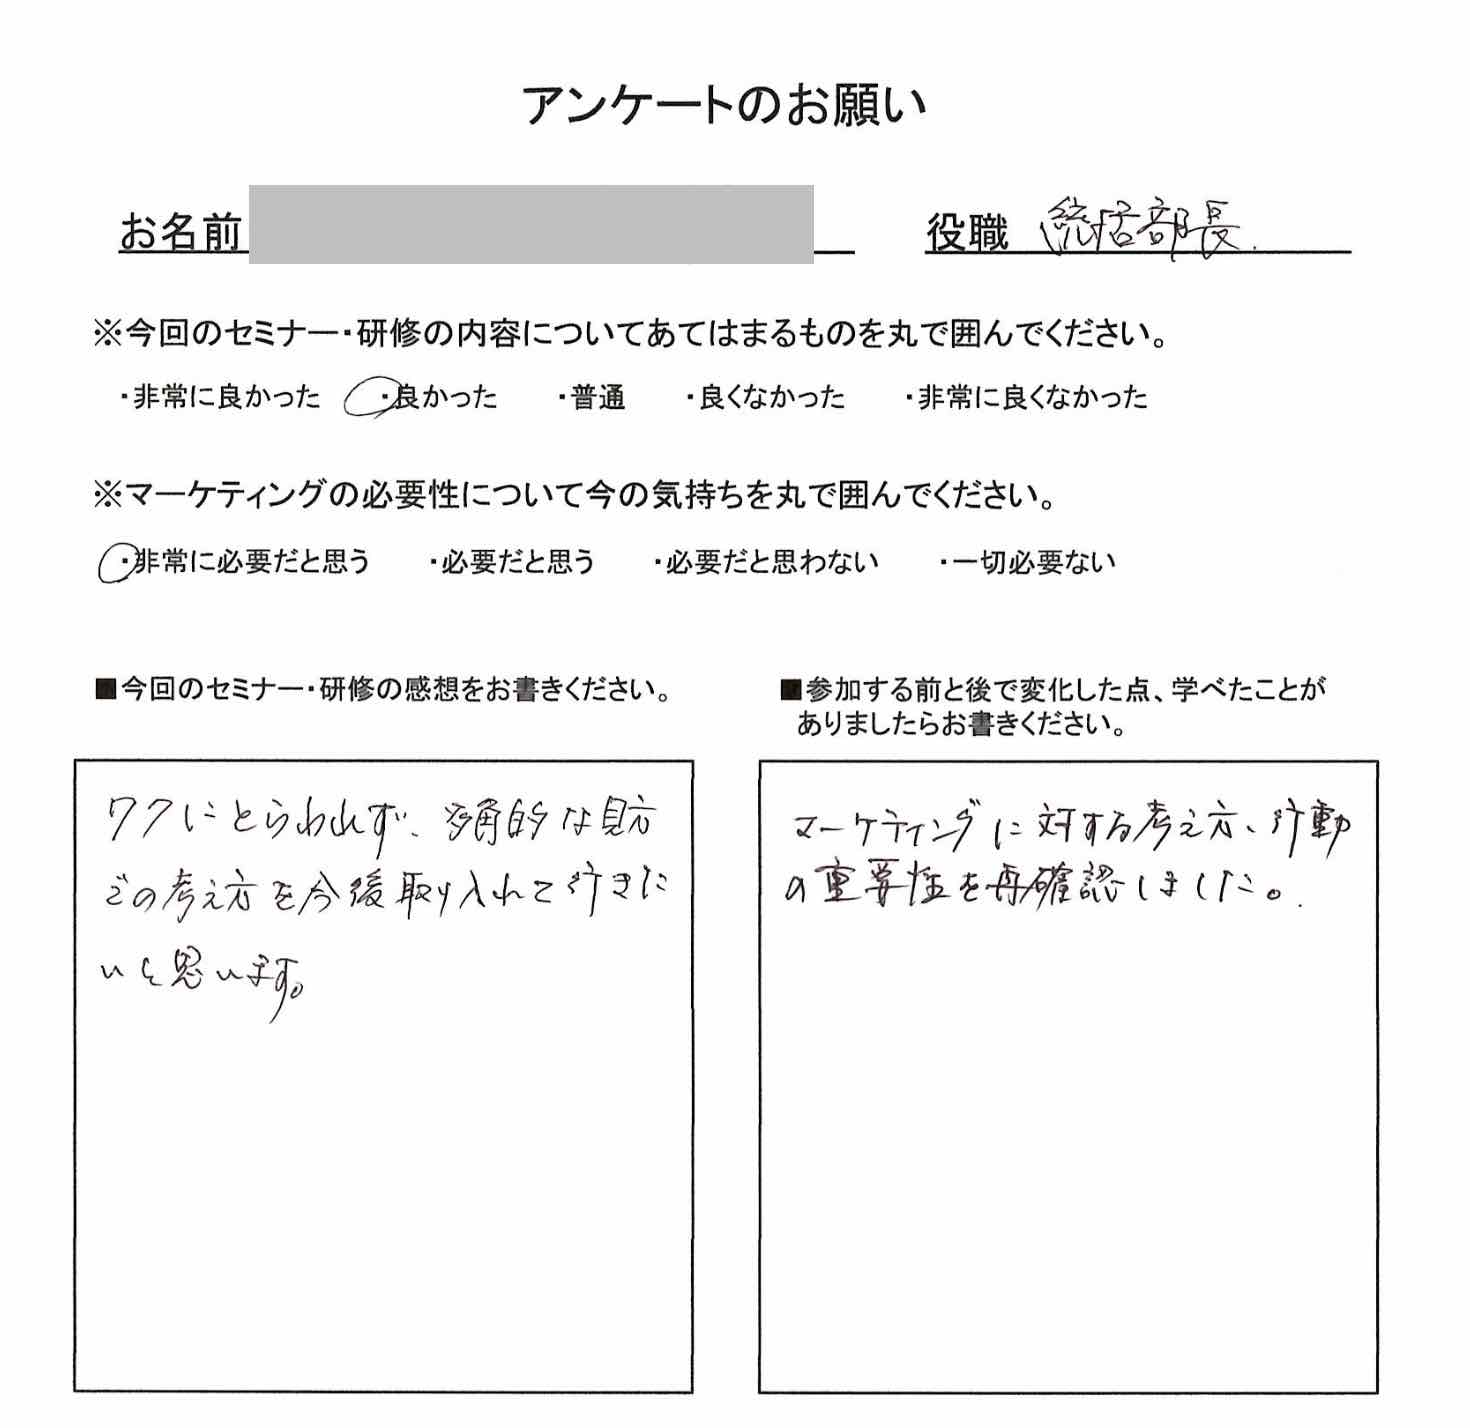 アンケートのお願い
お名前
役職 統括部長.
※今回のセミナー・研修の内容についてあてはまるものを丸で囲んでください。
・非常に良かった ・良かった ・普通 ・良くなかった ・非常に良くなかった
※マーケティングの必要性について今の気持ちを丸で囲んでください。
・非常に必要だと思う ・必要だと思う ・必要だと思わない ・一切必要ない
■今回のセミナー・研修の感想をお書きください。
ワクにとらわれず、多角的な見方
での考え方を今後取り入れて行きた
いと思います。
■参加する前と後で変化した点、学べたことが
ありましたらお書きください。
マーケティングに対する考え方、行動
の重要性を再確認しました。